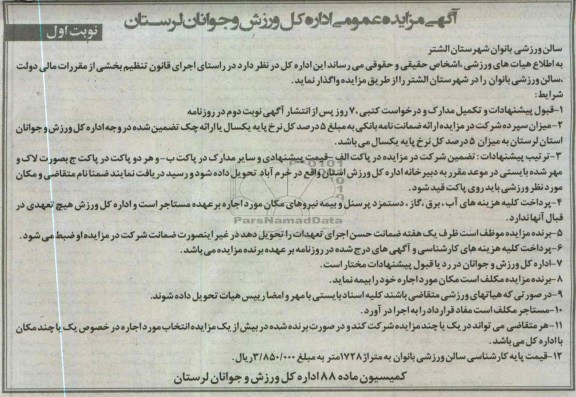 آگهی مزایده عمومی اداره کل ورزش و جوانان لرستان
نوبت اول
سالن ورزشی بانوان شهرستان الشتر
به اطلاع هیات های ورزشی ،اشخاص حقیقی و حقوقی می رساند این اداره کل در نظر دارد در راستای اجرای قانون تنظیم بخشی از مقررات مالی دولت
،سالن ورزشی بانوان را در شهرستان الشتر را از طریق مزایده واگذار نماید.
شرایط:
۱-قبول پیشنهادات و تکمیل مدارک و درخواست کتبی ۷۰ روز پس از انتشار آگهی نوبت دوم در روزنامه
۲-میزان سپرده شرکت در مزایده ارائه ضمانت نامه بانکی به مبلغ ۵ درصد کل نرخ پایه یکسال یا ارائه چک تضمین شده در وجه اداره کل ورزش و جوانان
استان لرستان به میزان ۵ درصد کل نرخ پایه یکسال می باشد.
۳-ترتیب پیشنهادات: تضمین شرکت در مزایده در پاکت الف -قیمت پیشنهادی و سایر مدارک در پاکت ب- و هر دو پاکت در پاکت ج بصورت لاک و
مهر شده بایستی در موعد مقرر به دبیرخانه اداره کل ورزش استان واقع در خرم آباد تحویل داده شود و رسید دریافت نمایند ضمنا نام متقاضی و مکان
مورد نظر ورزشی باید روی پاکت قید شود.
۴-پرداخت کلیه هزینه های آب ، برق ،گاز ، دستمزد پرسنل و بیمه نیروهای مکان مورد اجاره بر عهده مستاجر است و اداره کل ورزش هیچ تعهدی در
قبال آنها ندارد.
۵-برنده مزایده موظف است ظرف یک هفته ضمانت حسن اجرای تعهدات را تحویل دهد در غیر اینصورت ضمانت شرکت در مزایده او ضبط می شود.
۶-پرداخت کلیه هزینه های کارشناسی و آگهی های درج شده در روزنامه بر عهده برنده مزایده می باشد.
۷-اداره کل ورزش و جوانان در رد یا قبول پیشنهادات مختار است.
۸-برنده مزایده مکلف است مکان مورد اجاره خود را بیمه نماید.
۹-در صورتی که هیاتهای ورزشی متقاضی باشند کلیه اسناد بایستی با مهر و امضا رییس هیات تحویل داده شوند.
۱۰-مستاجر مکلف است مفاد قرارداد را به اجرا در آورد.
۱۱-هر متقاضی می تواند در یک یا چند مزایده شرکت کند و در صورت برنده شده در بیش از یک مزایده انتخاب مورد اجاره در خصوص یک یا چند مکان
با اداره کل می باشد.
۱۲-قیمت پایه کارشناسی سالن ورزشی بانوان به متراژ ۱۷۲۸متر به مبلغ ۳/۸۵۰/۰۰۰ریال.
کمیسیون ماده ۸۸ اداره کل ورزش و جوانان لرستان
ParsNamadData